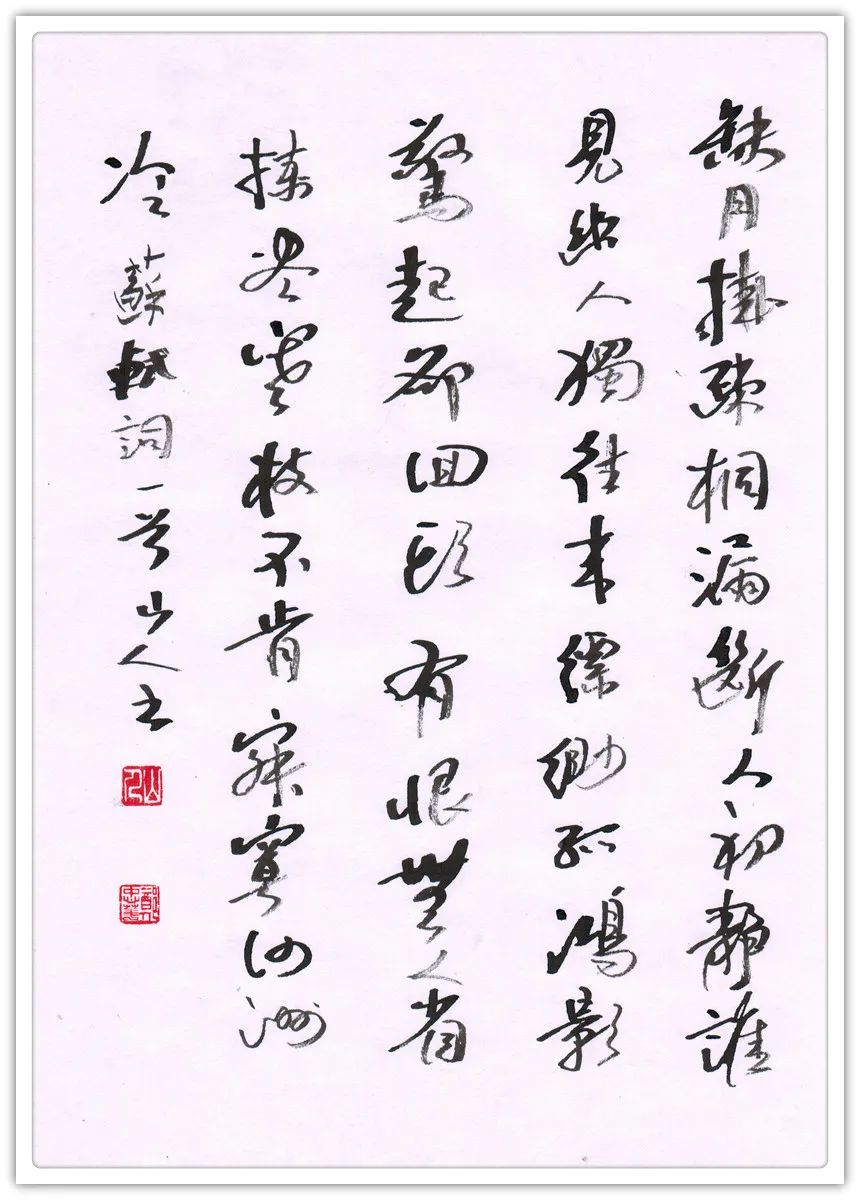 缺月掛疎桐漏斷人初靜誰
見幽人獨往来縹緲孤鴻影
驚起卻回頭有恨無人省
揀尽寒枝不肯寂寞沙洲
冷 蘇軾詞一山人书
山人